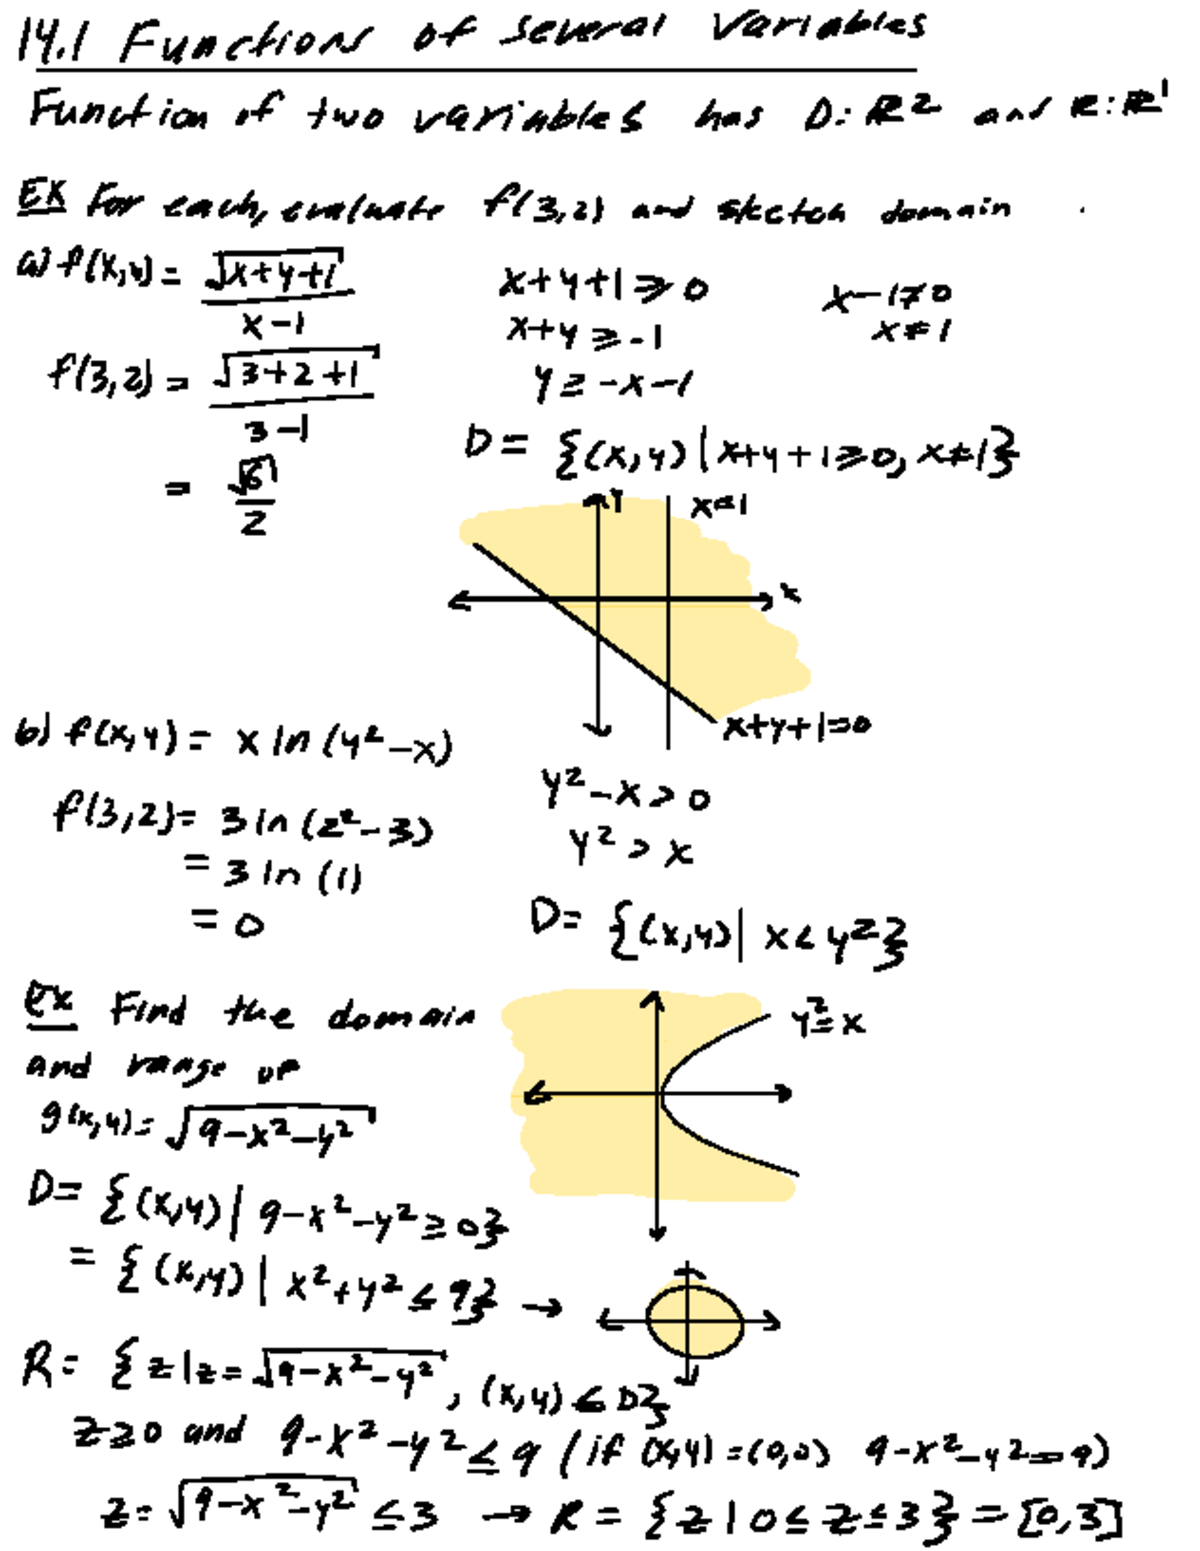 14.1 Functions of Several Variables
Function of two variables has D: ℝ2 and R: ℝ¹
EX For each, evaluate f(3,2) and sketch domain .
a) f(x,y) = √(x+y+1) / (x-1)
f(3,2) = √(3+2+1) / (3-1)
= √6 / 2
x+y+1 ≥ 0
x+y ≥ -1
y ≥ -x-1
x-1≠0
x≠1
D = {(x,y) | x+y+1≥0, x≠1}
y
x=1
x
x+y+1=0
b) f(x,y) = x ln(y²-x)
f(3,2) = 3 ln(2²-3)
= 3 ln(1)
= 0
y²-x > 0
y² > x
D= {(x,y) | x < y²}
y²=x
ex Find the domain
and range of
g(x,y) = √(9-x²-y²)
D= {(x,y) | 9-x²-y² ≥ 0}
= {(x,y) | x²+y² ≤ 9} →
R= {z | z = √(9-x²-y²), (x,y) ∈ D}
z≥0 and 9-x²-y² ≤ 9 (if (x,y) = (0,0) 9-x²-y²=9)
z= √(9-x²-y²) ≤ 3 → R = {z | 0≤z≤3} = [0,3]